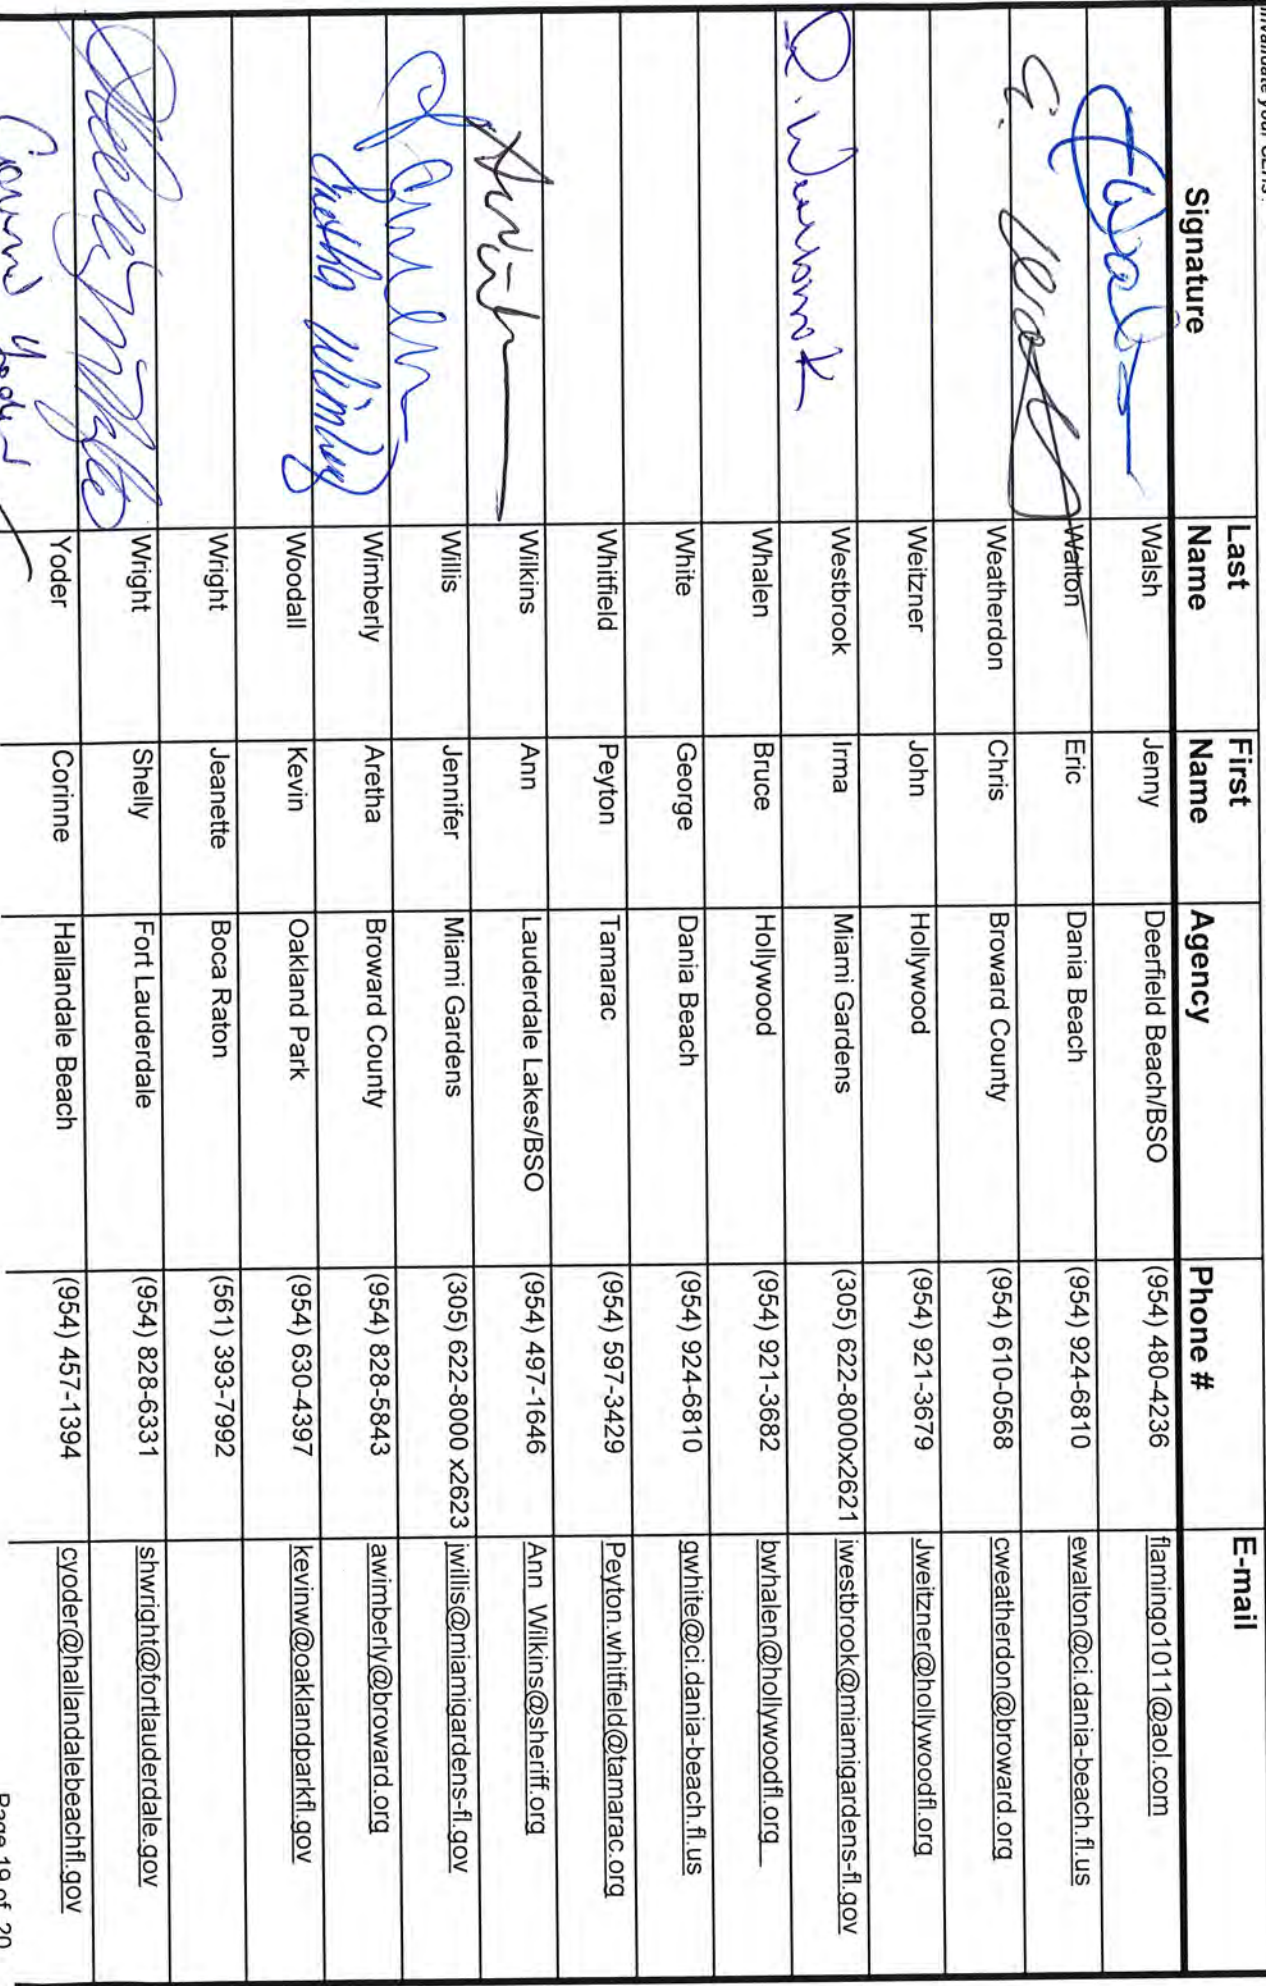 invalidate your CEHs.
Signature Last Name First Name Agency Phone # E-mail
Walsh Jenny Deerfield Beach/BSO (954) 480-4236 flamingo1011@aol.com
E. Walton Eric Dania Beach (954) 924-6810 ewalton@ci.dania-beach.fl.us
Weatherdon Chris Broward County (954) 610-0568 cweatherdon@broward.org
Weitzner John Hollywood (954) 921-3679 Jweitzner@hollywoodfl.org
I. Westbrook Westbrook Irma Miami Gardens (305) 622-8000x2621 iwestbrook@miamigardens-fl.gov
Whalen Bruce Hollywood (954) 921-3682 bwhalen@hollywoodfl.org
White George Dania Beach (954) 924-6810 gwhite@ci.dania-beach.fl.us
Whitfield Peyton Tamarac (954) 597-3429 Peyton.whitfield@tamarac.org
Wilkins Ann Lauderdale Lakes/BSO (954) 497-1646 Ann_Wilkins@sheriff.org
Willis Jennifer Miami Gardens (305) 622-8000 x2623 jwillis@miamigardens-fl.gov
Aretha Wimberly Wimberly Aretha Broward County (954) 828-5843 awimberly@broward.org
Woodall Kevin Oakland Park (954) 630-4397 kevinw@oaklandparkfl.gov
Wright Jeanette Boca Raton (561) 393-7992
Wright Shelly Fort Lauderdale (954) 828-6331 shwright@fortlauderdale.gov
Corinne Yoder Yoder Corinne Hallandale Beach (954) 457-1394 cyoder@hallandalebeachfl.gov
Page 19 of 20